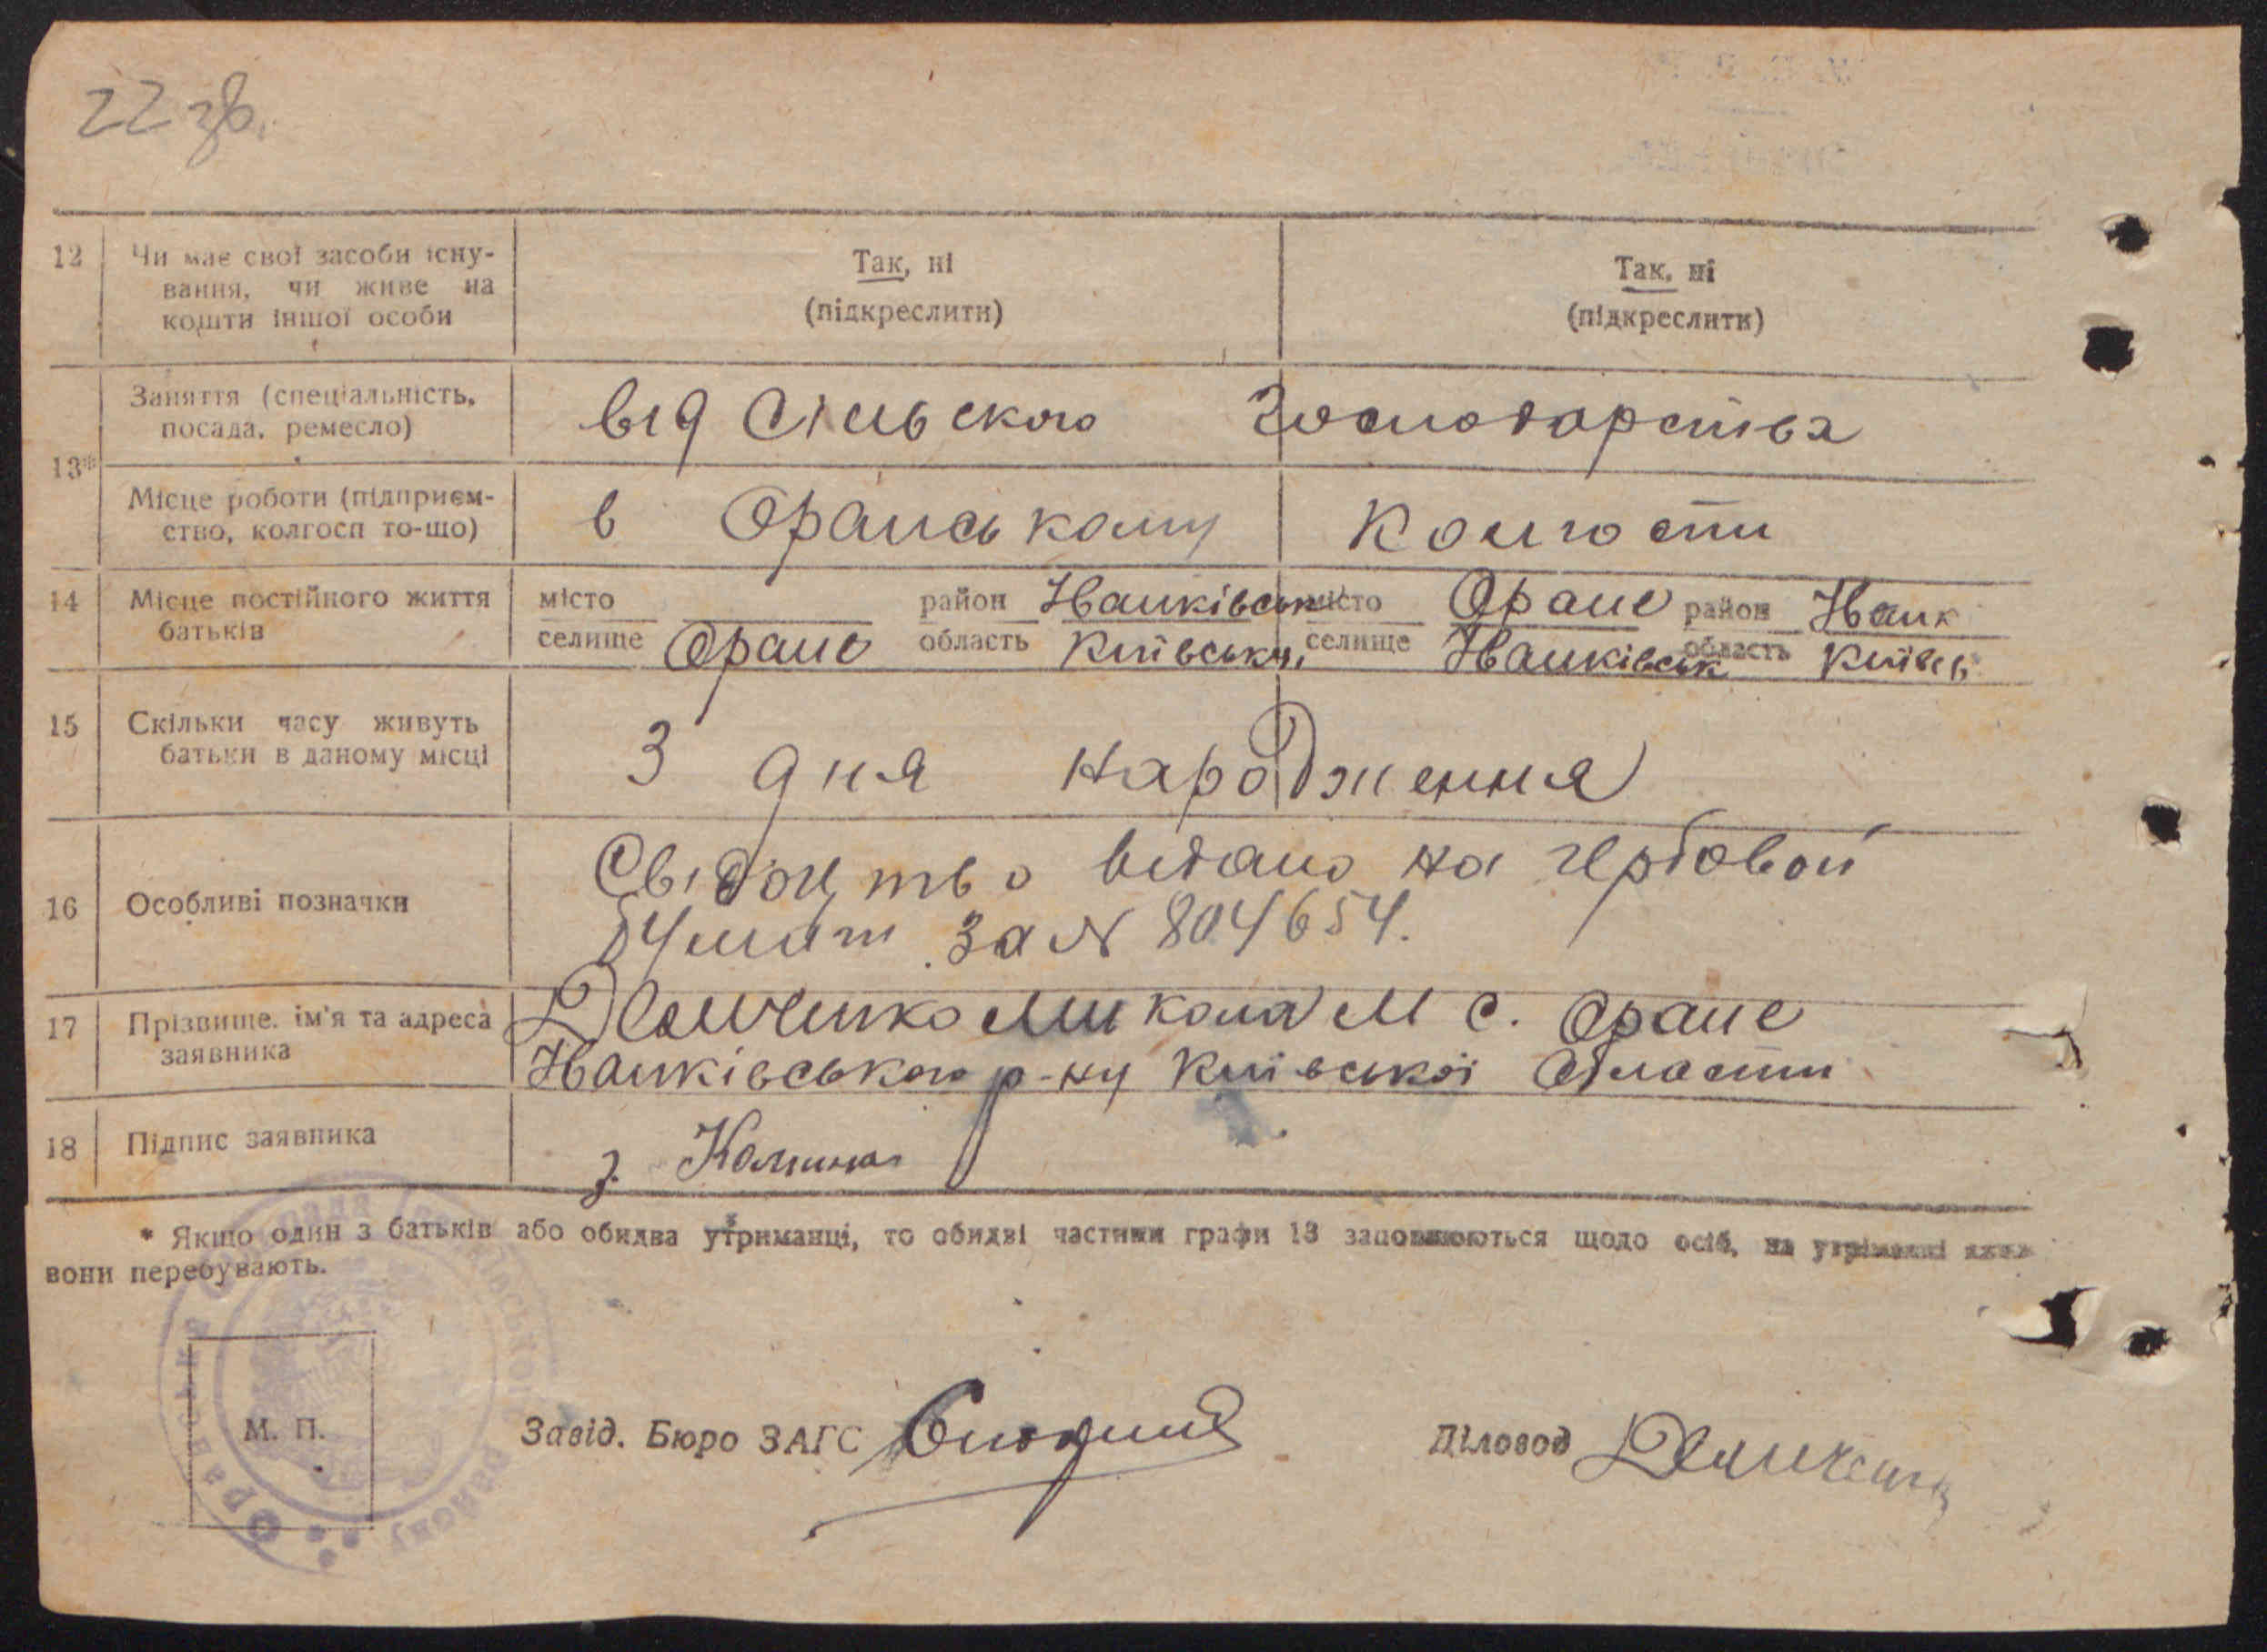 22 зв.
12 Чи має свої засоби існу- Так, ні Так, ні
вання, чи живе на
кошти іншої особи (підкреслити) (підкреслити)
Заняття (спеціальність, від Сільского Господарства
посада, ремесло)
13*
Місце роботи (підприєм- в Оранському Колгоспи
ство, колгосп то-що)
14 Місце постійного життя місто район Иванківськ місто Оране район Иванк
батьків селище Оране область Київська селище Иванківськ область Київсь
15 Скільки часу живуть З дня народження
батьки в даному місці
16 Особливі позначки Свідоцтво видано на гербовой
бумаги за № 804654.
17 Прізвище, ім'я та адреса Демченко Микола М с. Оране
заявника Иванківського р-ну Київської Области
18 Підпис заявника
* Якщо один з батьків або обидва утриманці, то обидві частини графи 13 заповнюються щодо осіб, на утріманні яких
вони перебувають.
М. П. Завід. Бюро ЗАГС Діловод Демченко